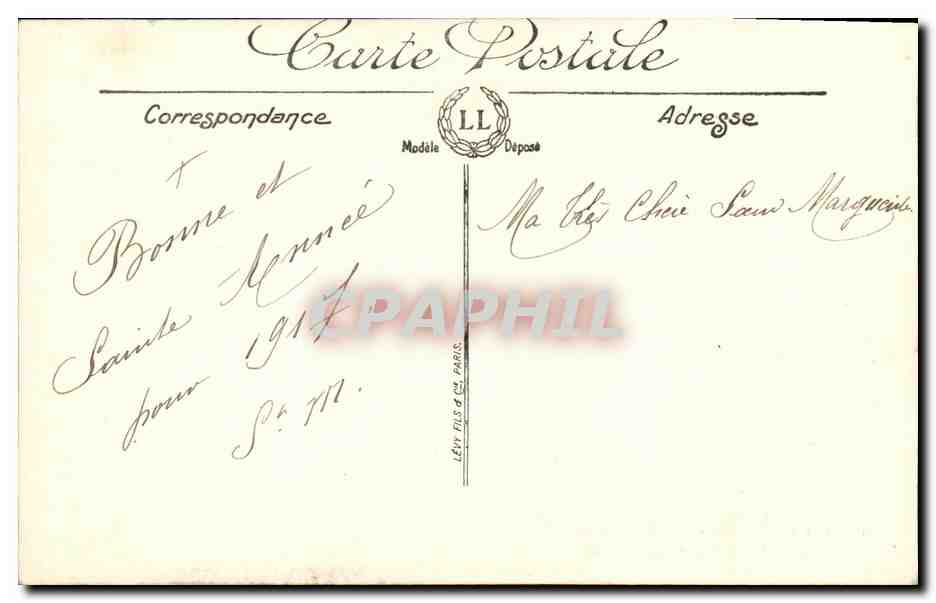 Carte Postale
Correspondance
LL
Adresse
Modèle Déposé
+
Bonne et
Sainte Année
pour 1917
Sr M.
Ma très Chère Sœur Marguerite
LÉVY FILS & Cie, PARIS.
CPAPHIL